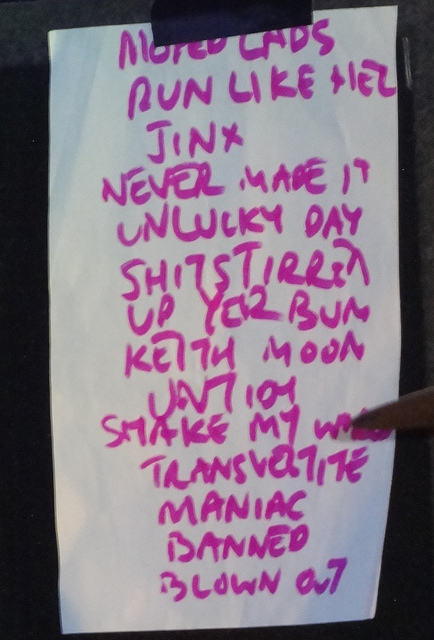 MOPED LADS
RUN LIKE HEL
JINX
NEVER MADE IT
UNLUCKY DAY
SHITSTIRRER
UP YER BUM
KEITH MOON
UNTIDY
SHAKE MY
TRANSVERTITE
MANIAC
BANNED
BLOWN OUT